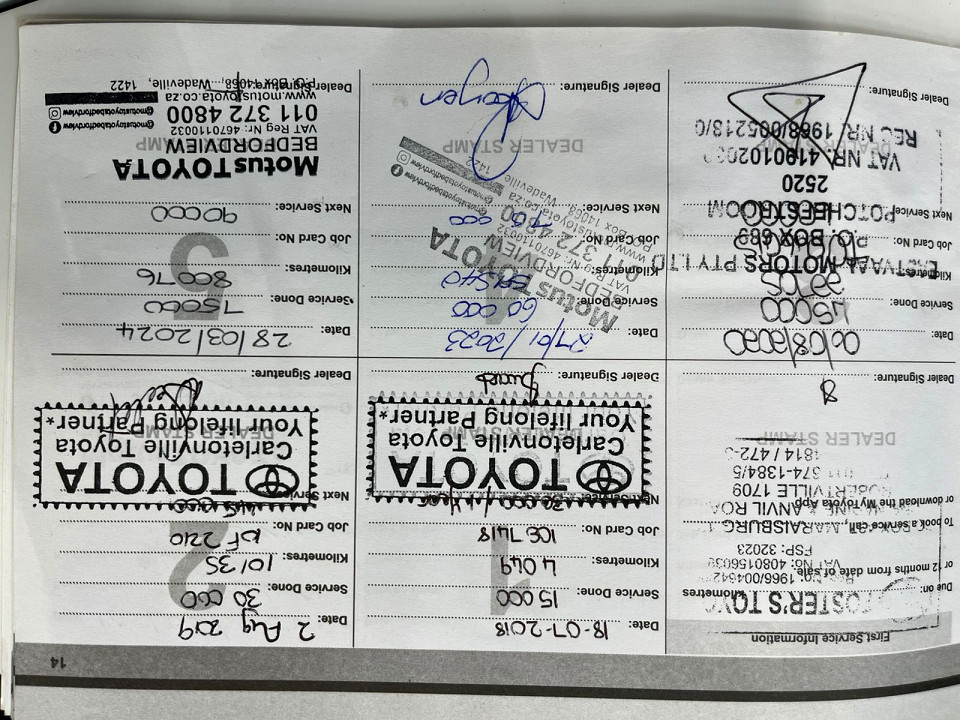 14
First Service Information
FOSTER'S TOYO
Due on:
kilometres
Reg No: 1966/004642
or 12 months from date of sale.
VAT NO: 4080156039
FSP: 32023
To book a service call,
MARAISBURG
or download the MyToyota App
ANVIL ROA
ROBERTVILLE 1709
011 674-1384/5
DEALER STAMP
Dealer Signature:
1
Date: 18-07-2018
Service Done: 15 000
Kilometres: 4 049
Job Card No:
Next Service: 30 000
TOYOTA
Carletonville Toyota
Your lifelong Partner*
Dealer Signature:
2
Date: 2 Aug 2019
Service Done: 30 000
Kilometres: 10135
Job Card No: 2210
Next Service: 45 000
DEALER STAMP
TOYOTA
Carletonville Toyota
Your lifelong Partner*
Dealer Signature:
Date: 06/08/2020
Service Done: 45000
Kilometres:
MOTORS PTY LTD
Job Card No:
P.O. BOX 689
Next Service:
POTCHEFSTROOM
2520
VAT NR.
REG NR. 1968/005213/0
Dealer Signature:
4
Date: 27/01/2023
Service Done: 60 000
Kilometres:
Job Card No:
Next Service:
Motus TOYOTA
BEDFORDVIEW
VAT Reg Nr: 4670110032
011 372 4800
P.O. Box 14068, Wadeville,
1422
@motustoyotabedfordview
DEALER STAMP
Dealer Signature:
5
Date: 28/03/2024
Service Done: 75000
Kilometres: 80076
Job Card No:
Next Service: 90000
Motus TOYOTA
BEDFORDVIEW
DEALER STAMP
VAT Reg Nr: 4670110032
011 372 4800
@motustoyotabedfordview
@motustoyotabedfordview
www.motustoyota.co.za
P.O. Box 14068, Wadeville, 1422
Dealer Signature: